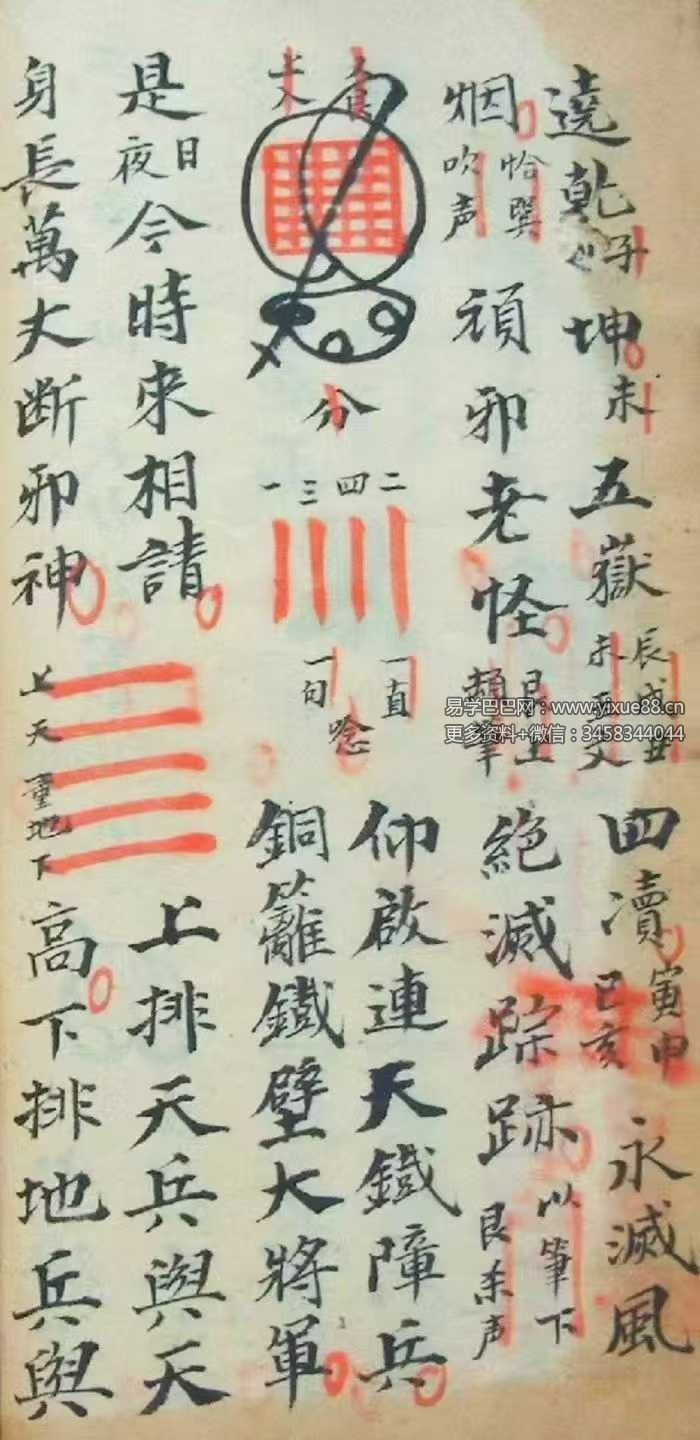 遶乾子坤未五嶽辰戌丑未四瀆寅申巳亥永滅風
烟恰巽吹声頑邪老怪絕滅踪跡以筆下艮杀声
分
二四三一
一直一句唸
仰啟連天鐵障兵
銅籬鐵壁大將軍
是日夜今時來相請上排天兵與天
身長萬丈断邪神上天高下排地兵與
地下
易学巴巴网：www.yixue88.cn
更多资料+微信：3458344044